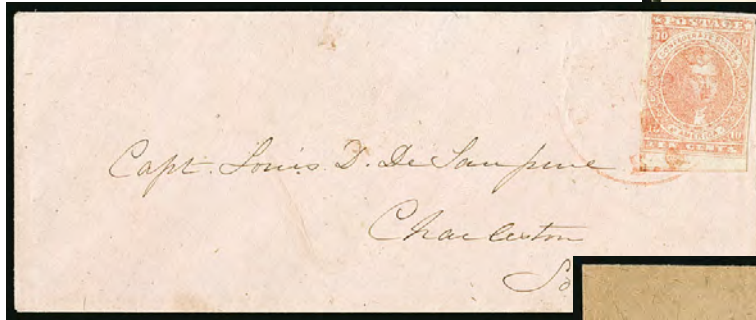 POSTAGE
10 10
CONFEDERATE STATES
OF AMERICA
10 10
TEN CENTS
Capt. Louis D. De Saussure
Charleston
So